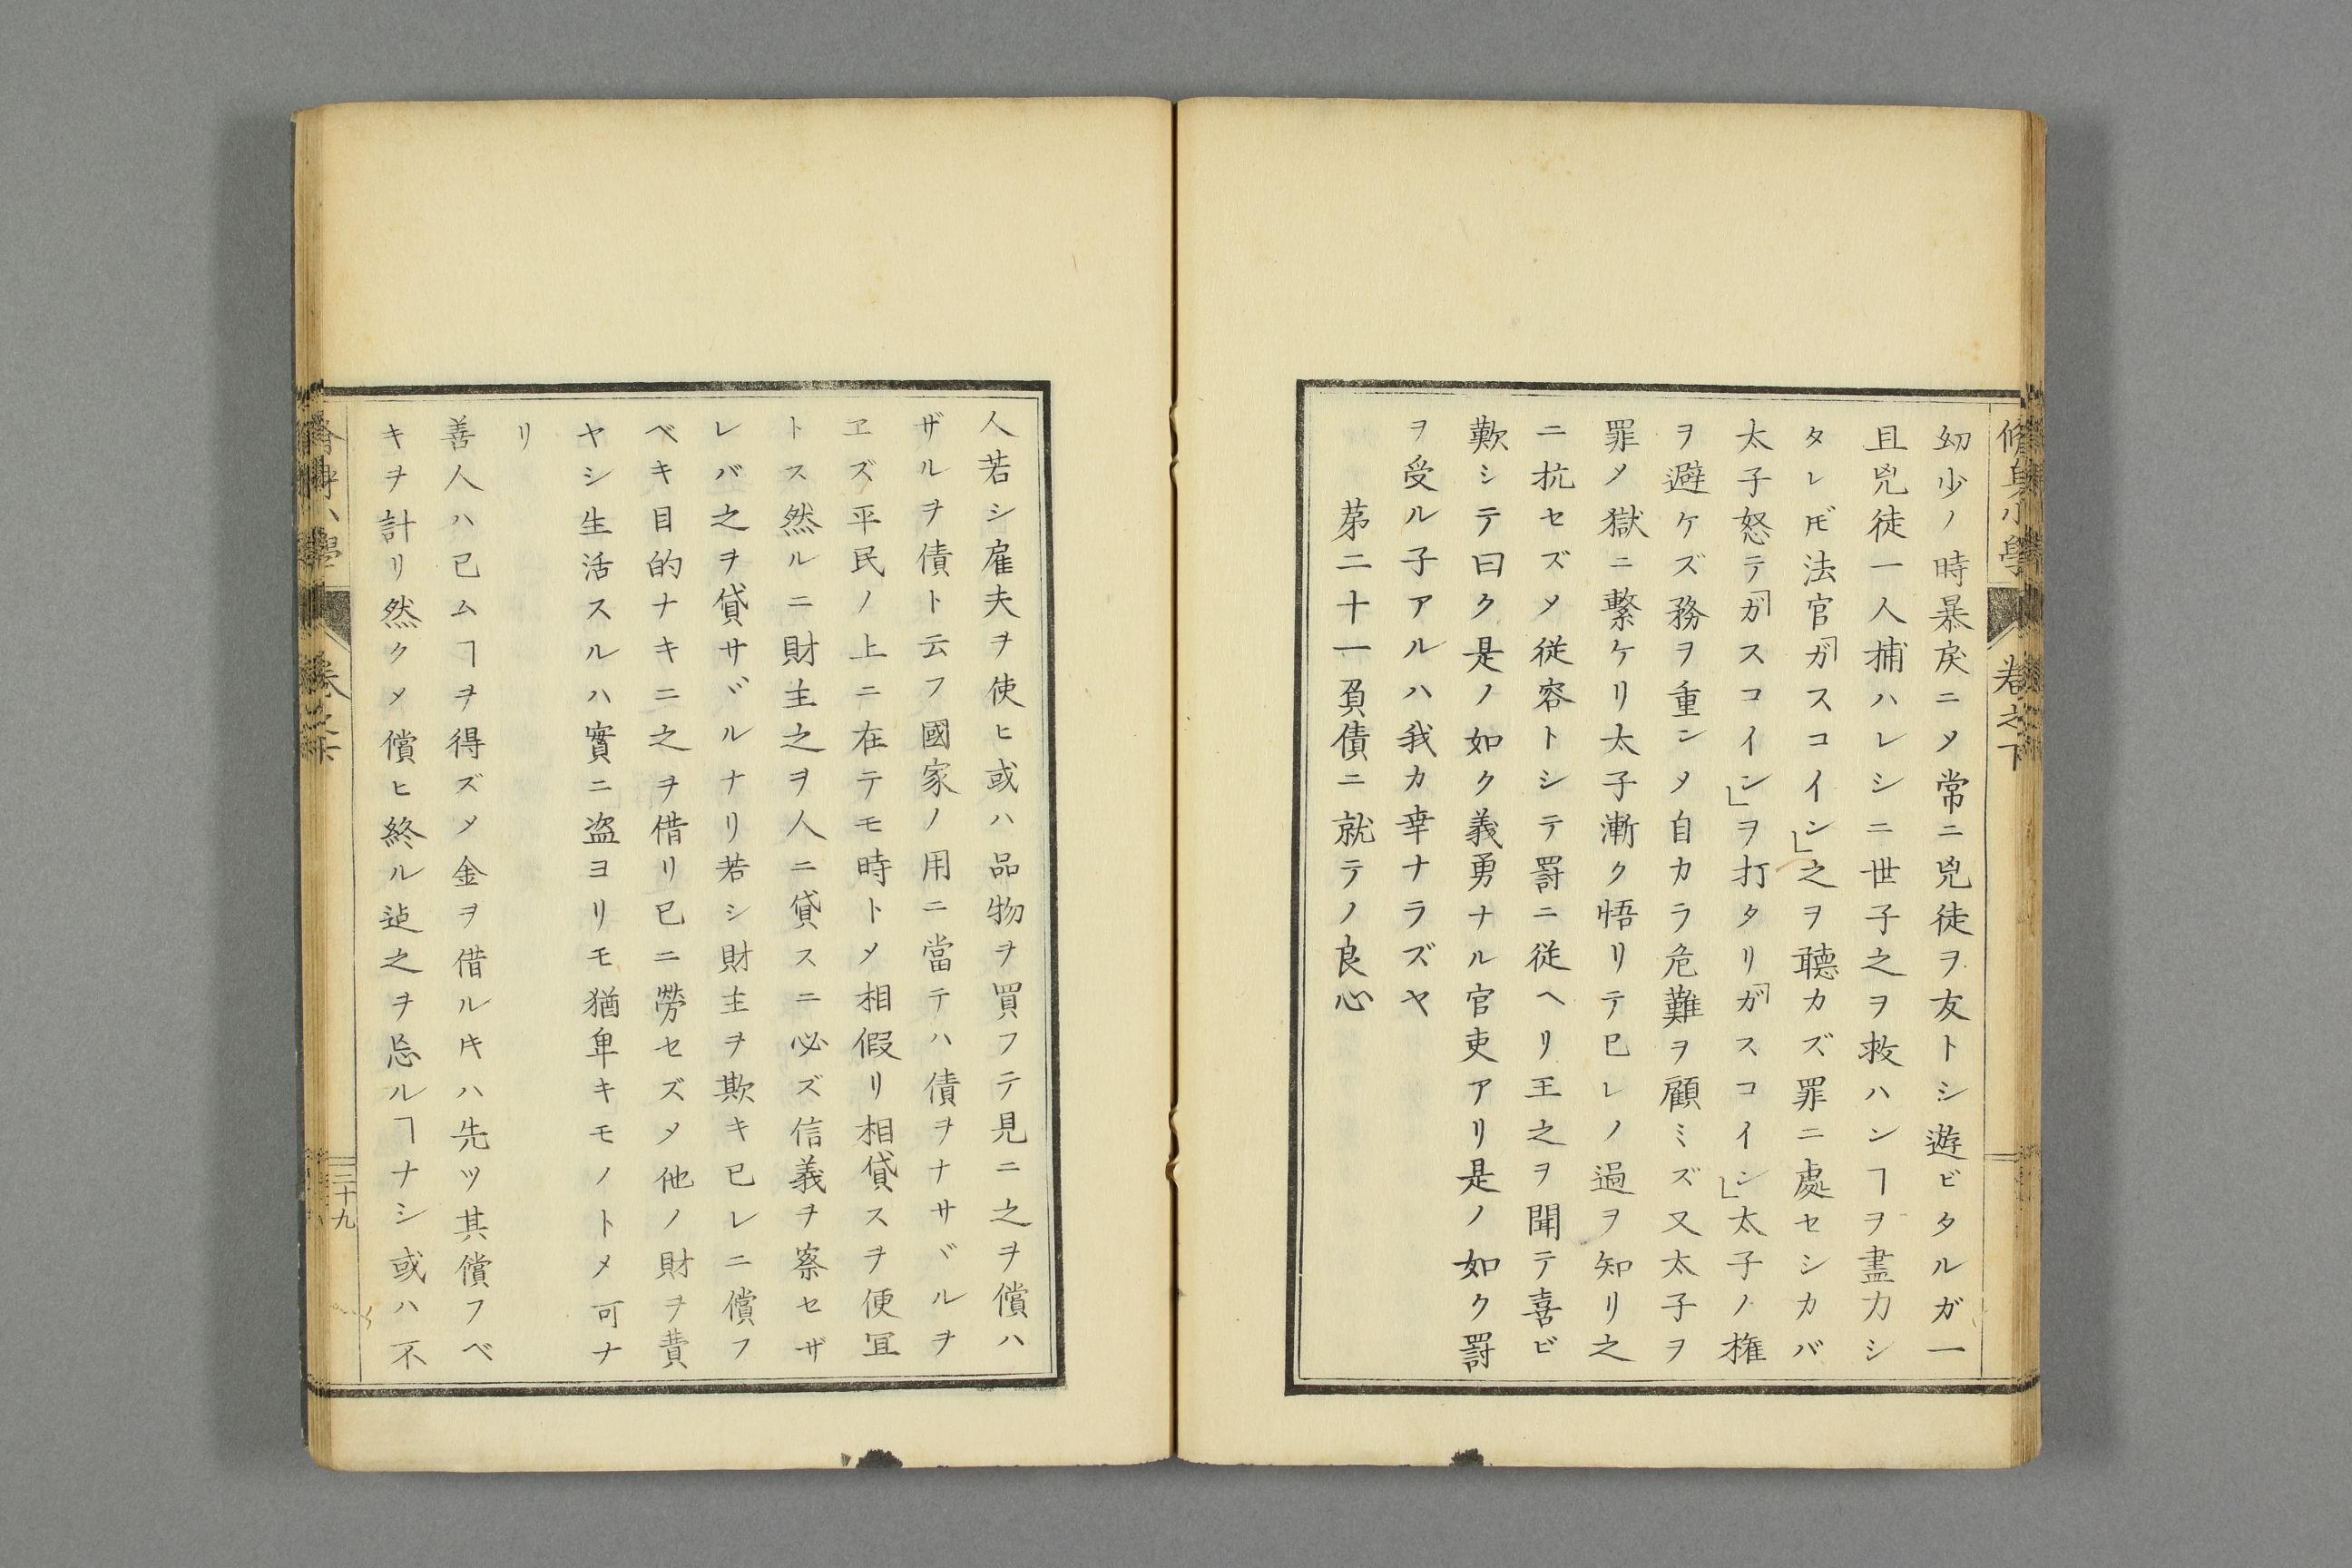 脩身小學 卷之下
幼少ノ時暴戻ニ〆常ニ兇徒ヲ友トシ遊ビタルガ一
且兇徒一人捕ハレシニ世子之ヲ救ハンヿヲ盡力シ
タレ𪜈法官「ガスコイン」之ヲ聽カズ罪ニ處セシカバ
太子怒テ「ガスコイン」ヲ打タリ「ガスコイン」太子ノ権
ヲ避ケズ務ヲ重ン〆自カラ危難ヲ顧ミズ又太子ヲ
罪〆獄ニ繋ケリ太子漸ク悟リテ已レノ過ヲ知リ之
ニ抗セズ〆従容トシテ罸ニ従ヘリ王之ヲ聞テ喜ビ
歎シテ曰ク是ノ如ク義勇ナル官吏アリ是ノ如ク罸
ヲ受ル子アルハ我カ幸ナラズヤ
苐二十一負債ニ就テノ良心
人若シ雇夫ヲ使ヒ或ハ品物ヲ買フテ見ニ之ヲ償ハ
ザルヲ債ト云フ國家ノ用ニ當テハ債ヲナサヾルヲ
ヱズ平民ノ上ニ在テモ時ト〆相假リ相貸スヲ便冝
トス然ルニ財主之ヲ人ニ貸スニ必ズ信義ヲ察セザ
レバ之ヲ貸サヾルナリ若シ財主ヲ欺キ已レニ償フ
ベキ目的ナキニ之ヲ借リ已ニ勞セズ〆他ノ財ヲ費
ヤシ生活スルハ實ニ盗ヨリモ猶卑キモノト〆可ナ
リ
善人ハ已ムヿヲ得ズ〆金ヲ借ルキハ先ツ其償フベ
キヲ計リ然ク〆償ヒ終ル迠之ヲ忘ルヿナシ或ハ不
三十九